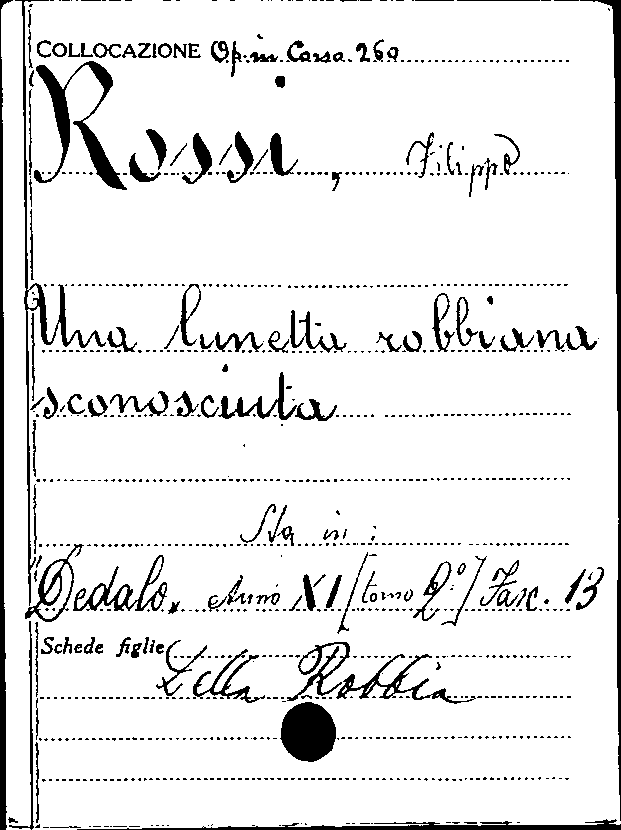 COLLOCAZIONE Op. in Corso 260
Rossi, Filippo
Una lunetta robbiana
sconosciuta
Sta in:
"Dedalo" Anno XI [tomo 2º] Fasc. 13
Schede figlie
Della Robbia